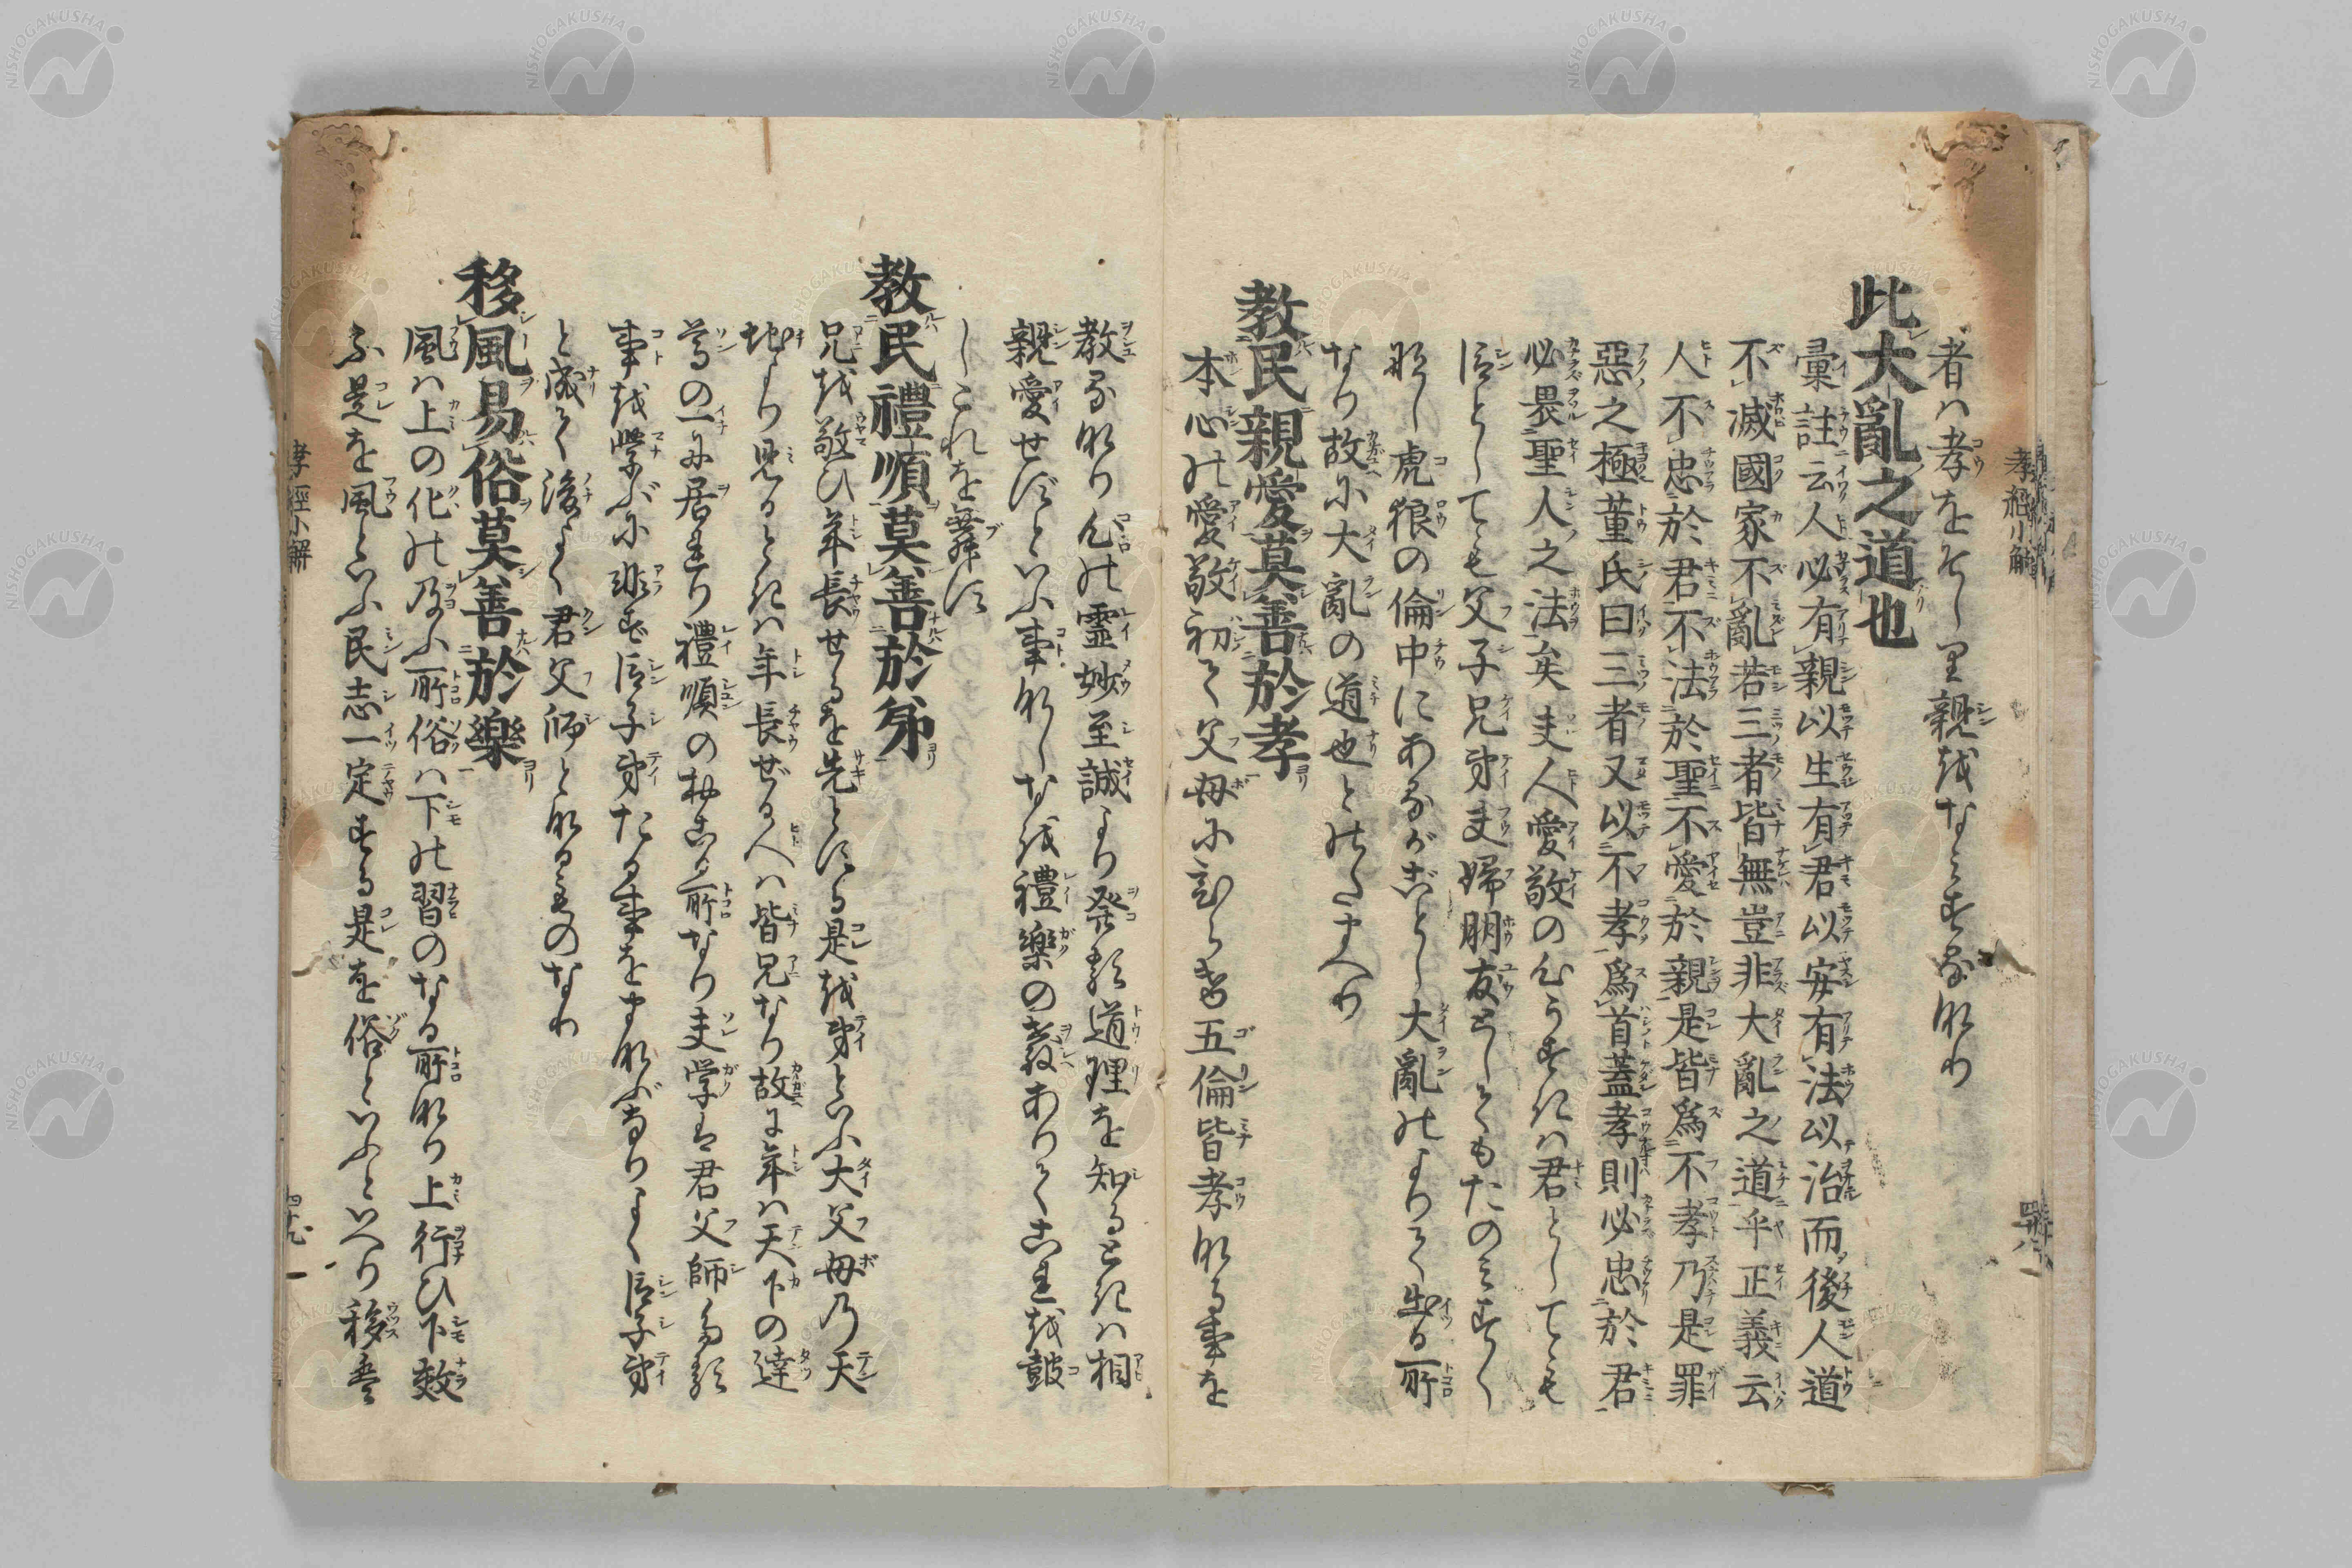 者ハ孝をそしり親をなみする也
此大亂之道也
彙註云人必有親以生有君以安有法以治而後人道
不滅國家不亂若三者皆無豈非大亂之道乎正義云
人不忠於君不法於聖不愛於親是皆爲不孝乃是罪
惡之極董氏曰三者又以不孝爲首蓋孝則必忠於君
必畏聖人之法矣夫人愛敬の心うすけれハ君としても
臣としても父子兄弟夫婦朋友としてもたのみすくなく
虎狼の倫中にあるがごとし大亂のよりて出る所
なり故に大亂の道也とのたまへり
教民親愛莫善於孝
本心の愛敬初て父母にひらけ五倫皆孝なる事を
教るなり心の靈妙至誠より発す道理を知るときハ相
親愛せずといふ事なしな礼樂の教ありてこれを鼓
しこれを舞す
教民禮順莫善於弟
兄を敬ひ年長せるを先とする是を弟といふ大父母乃天
地より見るときハ年長ぜる人ハ皆兄なり故に年ハ天下の達
尊の一に居れり禮順の出る所なり夫学は君父師
事を学ぶに非ず臣子弟たる事をまなぶなりよく臣子弟
と成て後よく君父師となるものなり
移風易俗莫善於樂
風ハ上の化の及ふ所俗ハ下の習のなる所なり上行ひ下效
ふ是を風といふ民志一定する是を俗といふといへり移
孝經小解